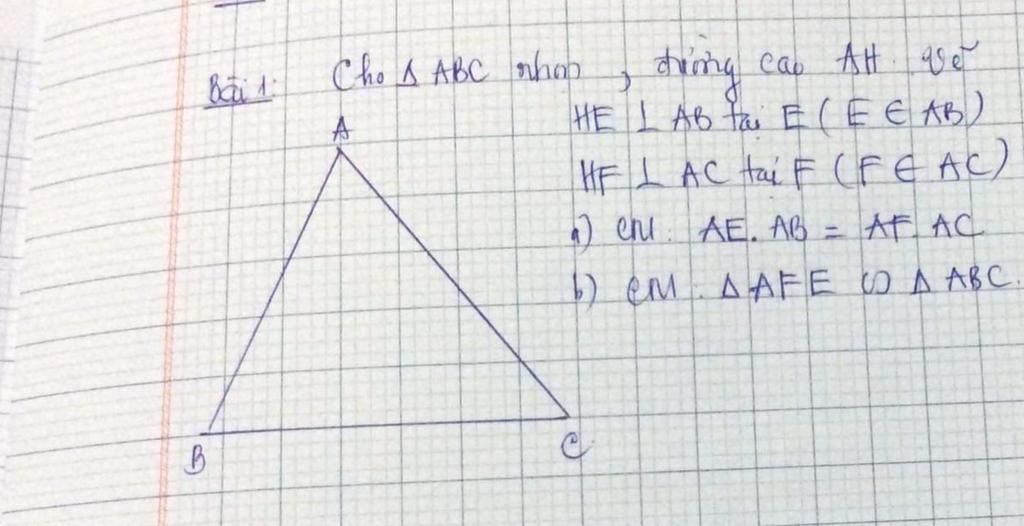 Bài 1: Cho Δ ABC nhọn, đường cao AH. Vẽ
HE ⊥ AB tại E (E ∈ AB)
HF ⊥ AC tại F (F ∈ AC)
a) CM: AE. AB = AF. AC
b) CM: Δ AFE ∽ Δ ABC.
A
B
C